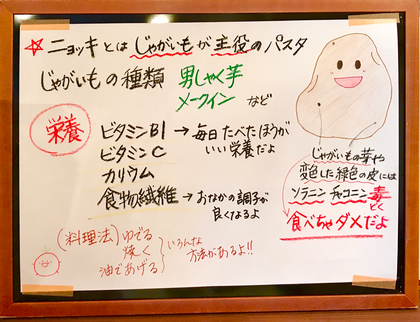 ☆ ニョッキとはじゃがいもが主役のパスタ
じゃがいもの種類 男しゃく芋
メークイン など
栄養
ビタミンB1 → 毎日たべたほうが
いい栄養だよ
ビタミンC
カリウム
食物繊維 → おなかの調子が
良くなるよ
(料理法) ゆでる
焼く
油であげる
いろんな
方法があるよ!!
じゃがいもの芽や
変色した緑色の皮には
ソラニン チャコニン 毒
どく
食べちゃダメだよ